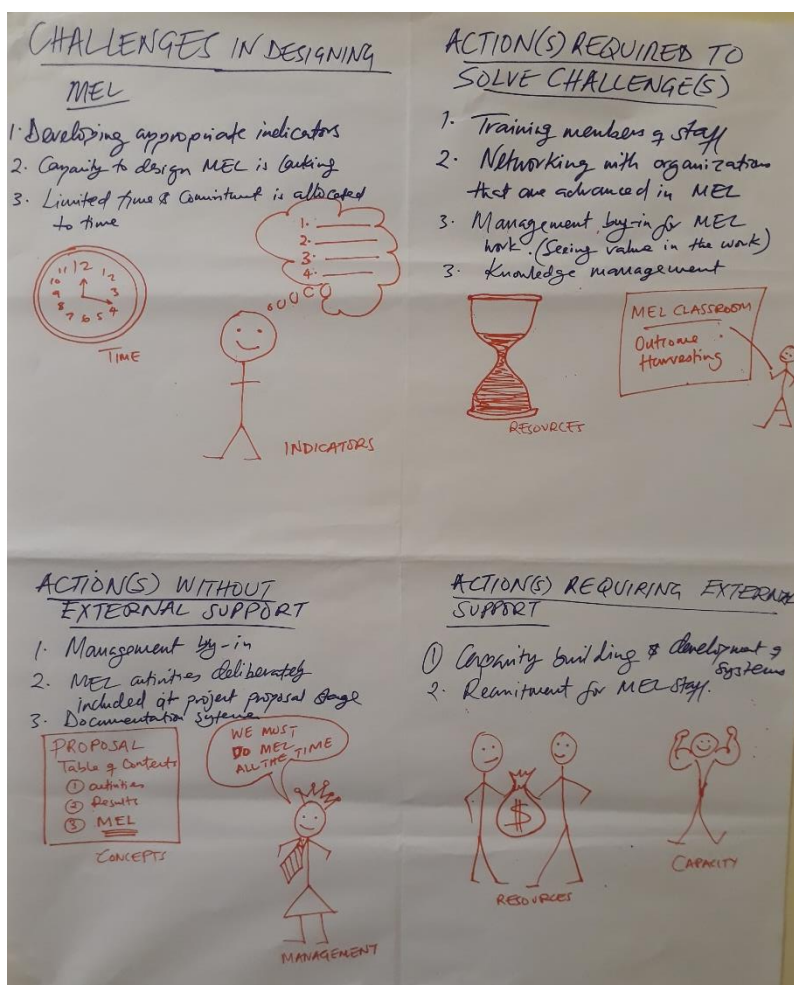 CHALLENGES IN DESIGNING
MEL
1. Developing appropriate indicators
2. Capacity to design MEL is lacking
3. Limited time & Comitment is allocated
to time
1.
2.
3.
4.
11 12 1 2 3 4 5 6 7 8 9 10
TIME
INDICATORS
ACTION(S) REQUIRED TO
SOLVE CHALLENGE(S)
1. Training members of staff
2. Networking with organizations
that are advanced in MEL
3. Management buy-in for MEL
work. (Seeing value in the work)
3. Knowledge management
MEL CLASSROOM
Outcome
Harvesting
RESOURCES
ACTION(S) WITHOUT
EXTERNAL SUPPORT
1. Management by-in
2. MEL activities deliberately
included at project proposal stage
3. Documentation systems
PROPOSAL
Table of Contents
① activities
② Results
③ MEL
CONCEPTS
WE MUST
DO MEL
ALL THE TIME
MANAGEMENT
ACTION(S) REQUIRING EXTERNAL
SUPPORT
① Capacity building & development of
systems
2. Recruitment for MEL Staff.
$
RESOURCES
CAPACITY